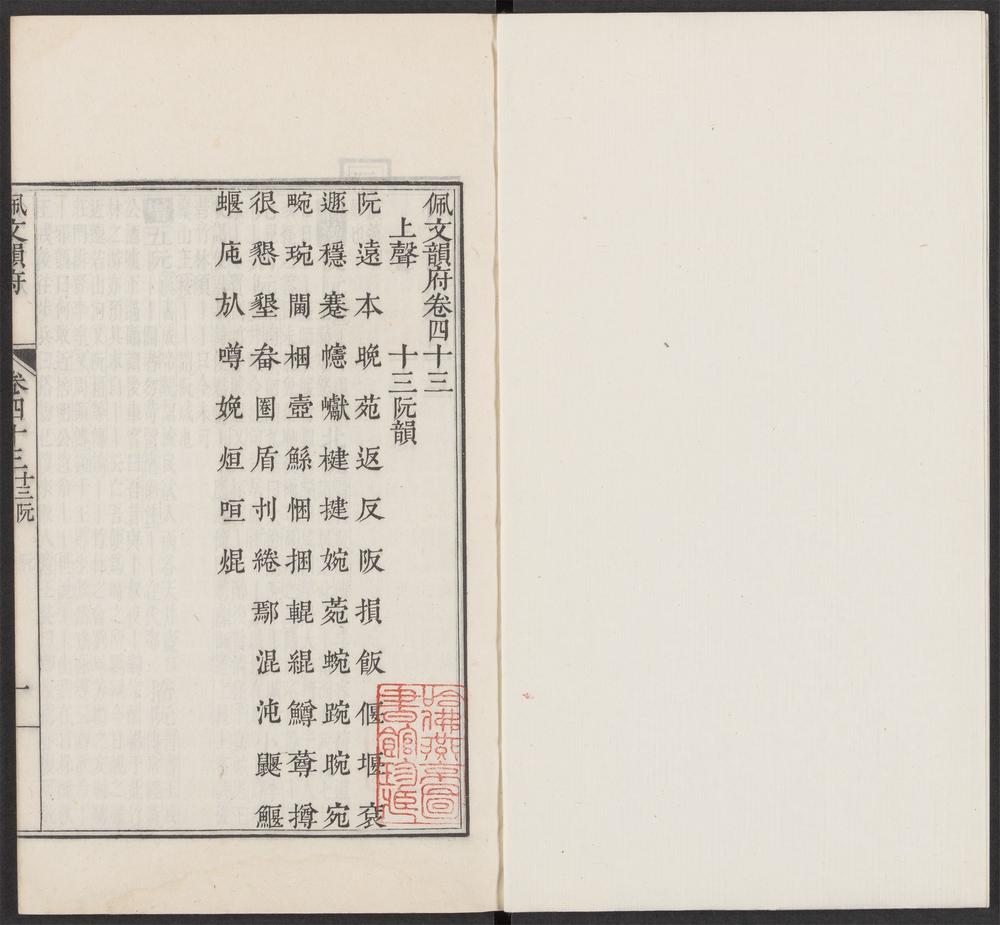 佩文韻府卷四十三
上聲　十三阮韻
阮遠本晚苑返反阪損飯偃堰袞
遯穩蹇幰巘楗揵婉菀蜿踠晼宛
畹琬閫梱壼鯀悃捆輥緄鱒蓴撙
很懇墾畚圈盾刌綣鄢混沌鼴鰋
蝘庉㫃噂娩烜咺焜
佩文韻府
卷四十三
十三阮
一
哈佛燕京圖書館珍藏